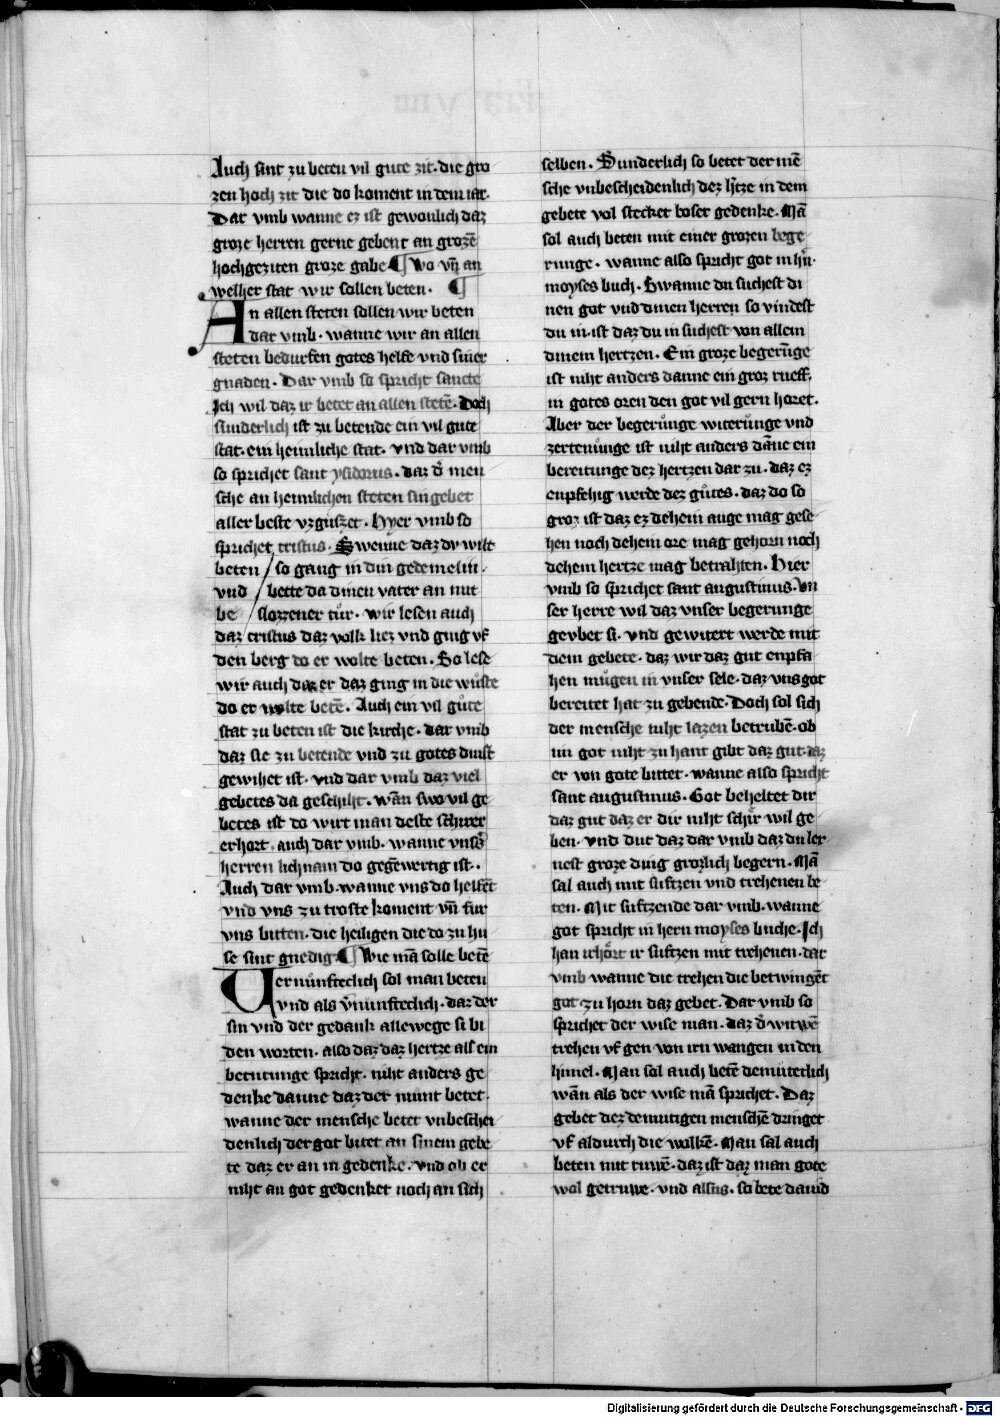 Auch sint zu beten vil gute zit. die gro
zen hoch zit die do koment in dem iar.
Dar vmb wanne ez ist gewonlich daz
groze herren gerne gebent an grozē
hochgeziten groze gabe ¶ Wo vn̄ an
welher stat wir sollen beten. ¶
An allen steten sollen wir beten
dar vmb. wanne wir an allen
steten bedurfen gotes helfe vnd siner
gnaden. Dar vmb so spricht sancte
Ich wil daz ir betet an allen stetē. Doch
sunderlich ist zu betende ein vil gute
stat. ein heimliche stat. vnd dar vmb
so sprichet sant ysidorus. daz d̓ men
sche an heimlichen steten sin gebet
aller beste vzguͦszet. Hyer vmb so
sprichet cristus. Swenne daz dv wilt
beten / so gang in din gedemelin.
vnd / bette da dinen vater an mit
be / slozzener tuͤr. wir lesen auch
daz cristus daz volk liez vnd ging vf
den berg do er wolte beten. So lese
wir auch daz er daz ging in die wuͤste
do er wolte betē. Auch ein vil guͦte
stat zu beten ist die kirche. dar vmb
daz sie zu betende vnd zu gotes dinst
gewihet ist. vnd dar vmb daz viel
gebetes da geschiht. wān swo vil ge
betes ist do wirt man deste schirer
erhort. auch dar vmb. wanne vns̓s
herren lichnam do gegēwertig ist..
Auch dar vmb. wanne vns do helfēt
vnd vns zu troste koment vn̄ fur
vns bitten. die heiligen die do zu hu
se sint gnedig. ¶ Wie mā solle betē
Vernuͤnfteclich sol man beten
vnd als v̓nunfteclich. daz der
sin vnd der gedank allewege si bi
den worten. also daz daz hertze als ein
betutunge spricht. niht anders ge
denke danne daz der munt betet.
wanne der mensche betet vnbeschei
denlich der got bitet an sinem gebe
te daz er an in gedenke. vnd ob er
niht an got gedenket noch an sich
selben. Sunderlich so betet der mē
sche vnbescheidenlich dez h̓tze in dem
gebete vol stecket boser gedenke. Mā
sol auch beten mit einer grozen bege
runge. wanne also spricht got in h̓n.
moyses buch. Swanne du suchest di
nen got vnd dinen herren so vindest
du in. ist daz du in suchest von allem
dinem hertzen. Ein groze begerūge
ist niht anders danne ein groz rueff.
in gotes oren den got vil gern horet.
Aber der begeruͤnge witeruͤnge vnd
zertenuͤnge ist niht anders dāne ein
bereitunge dez hertzen dar zu. daz ez
enpfehig werde dez guͦtes. daz do so
groz ist daz ez dehein auge mag gese
hen noch dehein ore mag gehorn noch
dehein hertze mag betrahten. Hier
vmb so sprichet sant augustinus. Vn
ser herre wil daz vnser begerunge
gevbet si. vnd gewitert werde mit
dem gebete. daz wir daz gut enpfa
hen muͤgen in vnser sele. daz vns got
bereitet hat zu gebende. Doch sol sich
der mensche niht lazen betrubē. ob
im got niht zu hant gibt daz gut. daz
er von gote bittet. wanne also spricht
sant augustinus. Got beheltet dir
daz gut daz er dir niht schir wil ge
ben. vnd dut daz dar vmb daz du ler
nest groze ding grozlich begern. Mā
sal auch mit suftzen vnd trehenen be
ten. Mit suftzende dar vmb. wanne
got spricht in hern moyses buche. Ich
han erhoͤrt ir suftzen mit trehenen. dar
vmb wanne die trehen die betwingēt
got zu horn daz gebet. Dar vmb so
sprichet der wise man. daz d̓ witwē
trehen vf gen von irn wangen in den
himel. Man sol auch betē demuteclich
wān als der wise mā sprichet. Daz
gebet dez demutigen menschē dringet
vf aldurch die wolkē. Man sal auch
beten mit truwē. daz ist daz man gote
wol getruwe. vnd alsus. so bete dauid
Digitalisierung gefördert durch die Deutsche Forschungsgemeinschaft - DFG